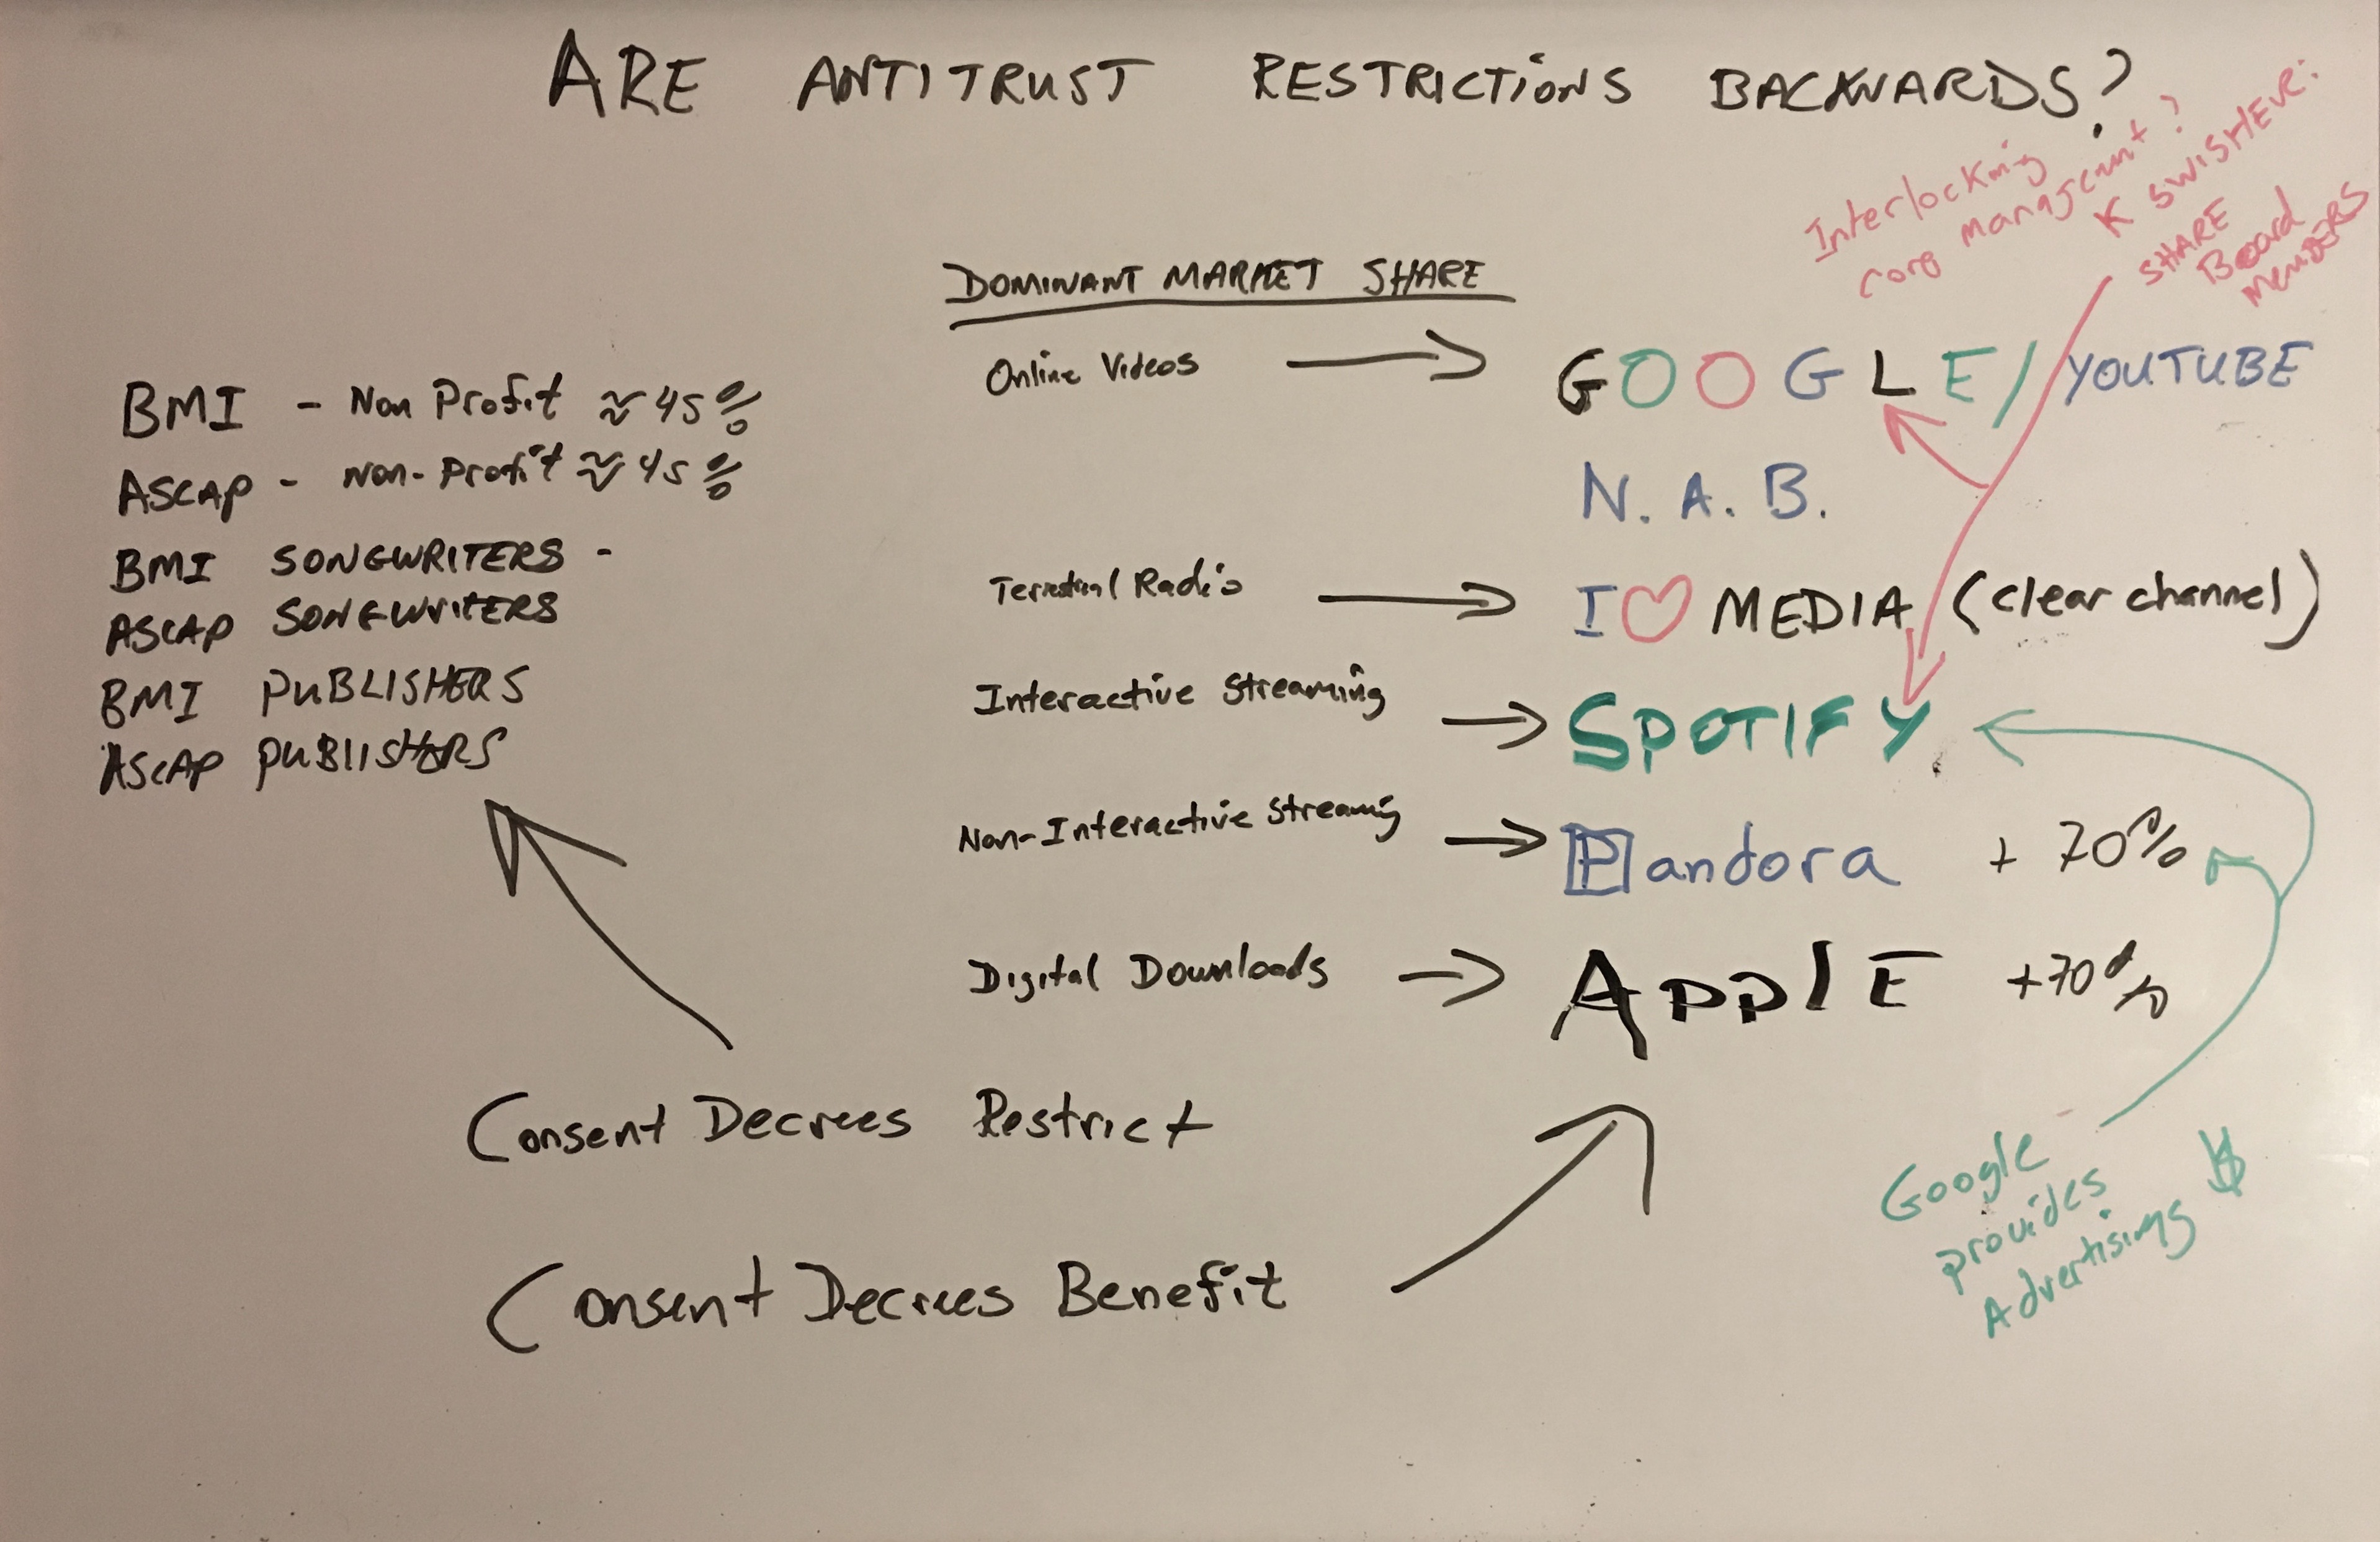 ARE ANTITRUST RESTRICTIONS BACKWARDS?
Interlocking
corp management?
K SWISHER:
SHARE
Board
MEMBERS
DOMINANT MARKET SHARE
Online Videos → GOOGLE/YOUTUBE
N.A.B.
Terrestrial Radio → I♡MEDIA (clear channel)
Interactive Streaming → SPOTIFY
Non-Interactive Streaming → Pandora + 70%
Digital Downloads → APPLE +70%
BMI - Non Profit ≈ 45%
ASCAP - Non-Profit ≈ 45%
BMI SONGWRITERS -
ASCAP SONGWRITERS
BMI PUBLISHERS
ASCAP PUBLISHERS
Consent Decrees Restrict
Consent Decrees Benefit
Google
provides
Advertising $